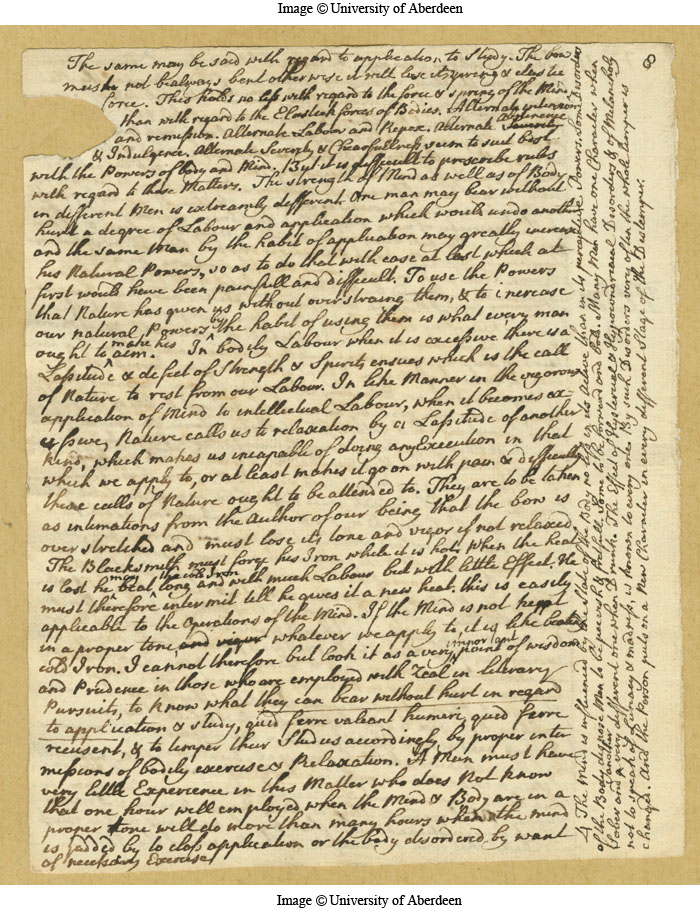 Image © University of Aberdeen
8
The same may be said with regard to application to Study. The bow
must not be always bent otherwise it will lose its spring & elastic
force. This holds no less with regard to the force & spring of the Mind
than with regard to the Elastick forces of Bodies. Alternate intension
and remission. Alternate Labour and Repose. Alternate Abstinence
& Indulgence. Alternate Severity & Chearfullness seem to suit best
with the Powers of body and Mind. But it is difficult to prescribe rules
with regard to these Matters. The strength of Mind as well as of Body
in different Men is extreamly different. One man may bear without
hurt a degree of Labour and application which would undo another
and the same Man by the habit of application may greatly increase
his Natural Powers, so as to do that with ease at last which at
first would have been painfull and difficult. To use the Powers
that Nature has given us without overstraining them, & to increase
our natural Powers by the habit of using them is what every man
ought to make his aim. In bodily Labour when it is excessive there is a
Lassitude & defect of Strength & Spirits ensues which is the call
of Nature to rest from our Labour. In like Manner in the vigorous
application of Mind to intellectual Labour, when it becomes ex-
cessive, Nature calls us to relaxation by a Lassitude of another
kind, which makes us incapable of doing any Execution in that
which we apply to, or at least makes it go on with pain & difficulty
these calls of Nature ought to be attended to. They are to be taken
as intimations from the Author of our being that the bow is
over stretched and must lose its tone and vigor if not relaxed.
The Blacksmith must forge his Iron while it is hot, when the heat
is lost he may beat the cold Iron long and with much Labour but with little Effect. He
must therefore intermit till he gives it a new heat. this is easily
applicable to the Operations of the Mind. If the Mind is not kept
in a proper tone, and vigor whatever we apply to, it is like beating
cold Iron. I cannot therefore but look it as a very important point of wisdom
and Prudence in those who are employed with Zeal in literary
Pursuits, to know what they can bear without hurt in regard
to application & study, quid ferre valeant humeri, quid ferre
recusent, & to temper their Studies accordingly by proper inter
missions of bodily exercise & Relaxation. A Man must have
very little Experience in this Matter who does Not know
that one hour well employed when the Mind & Body are in a
proper tone will do more than many hours when the mind
is jadded by to close application or the body disordered by want
of necessary Exercise
4 The Mind is influenced by the State of the Body no less in its active than in its perceptive Powers. Some Disorders
of the Body dispose Men to be peevish & fretfull. Some to be forward and bold. Many Men have one Character when
sober and another a very different one when Drunk. The Effect of Hysterical & Hypocondriacal Disorders & of Melancholy
not to speak of Lunacy & madness, is known to every one. By such Disorders very often the whole temper is
changed. And the Person puts on a New Character in every different Stage of the Distemper.
Image © University of Aberdeen